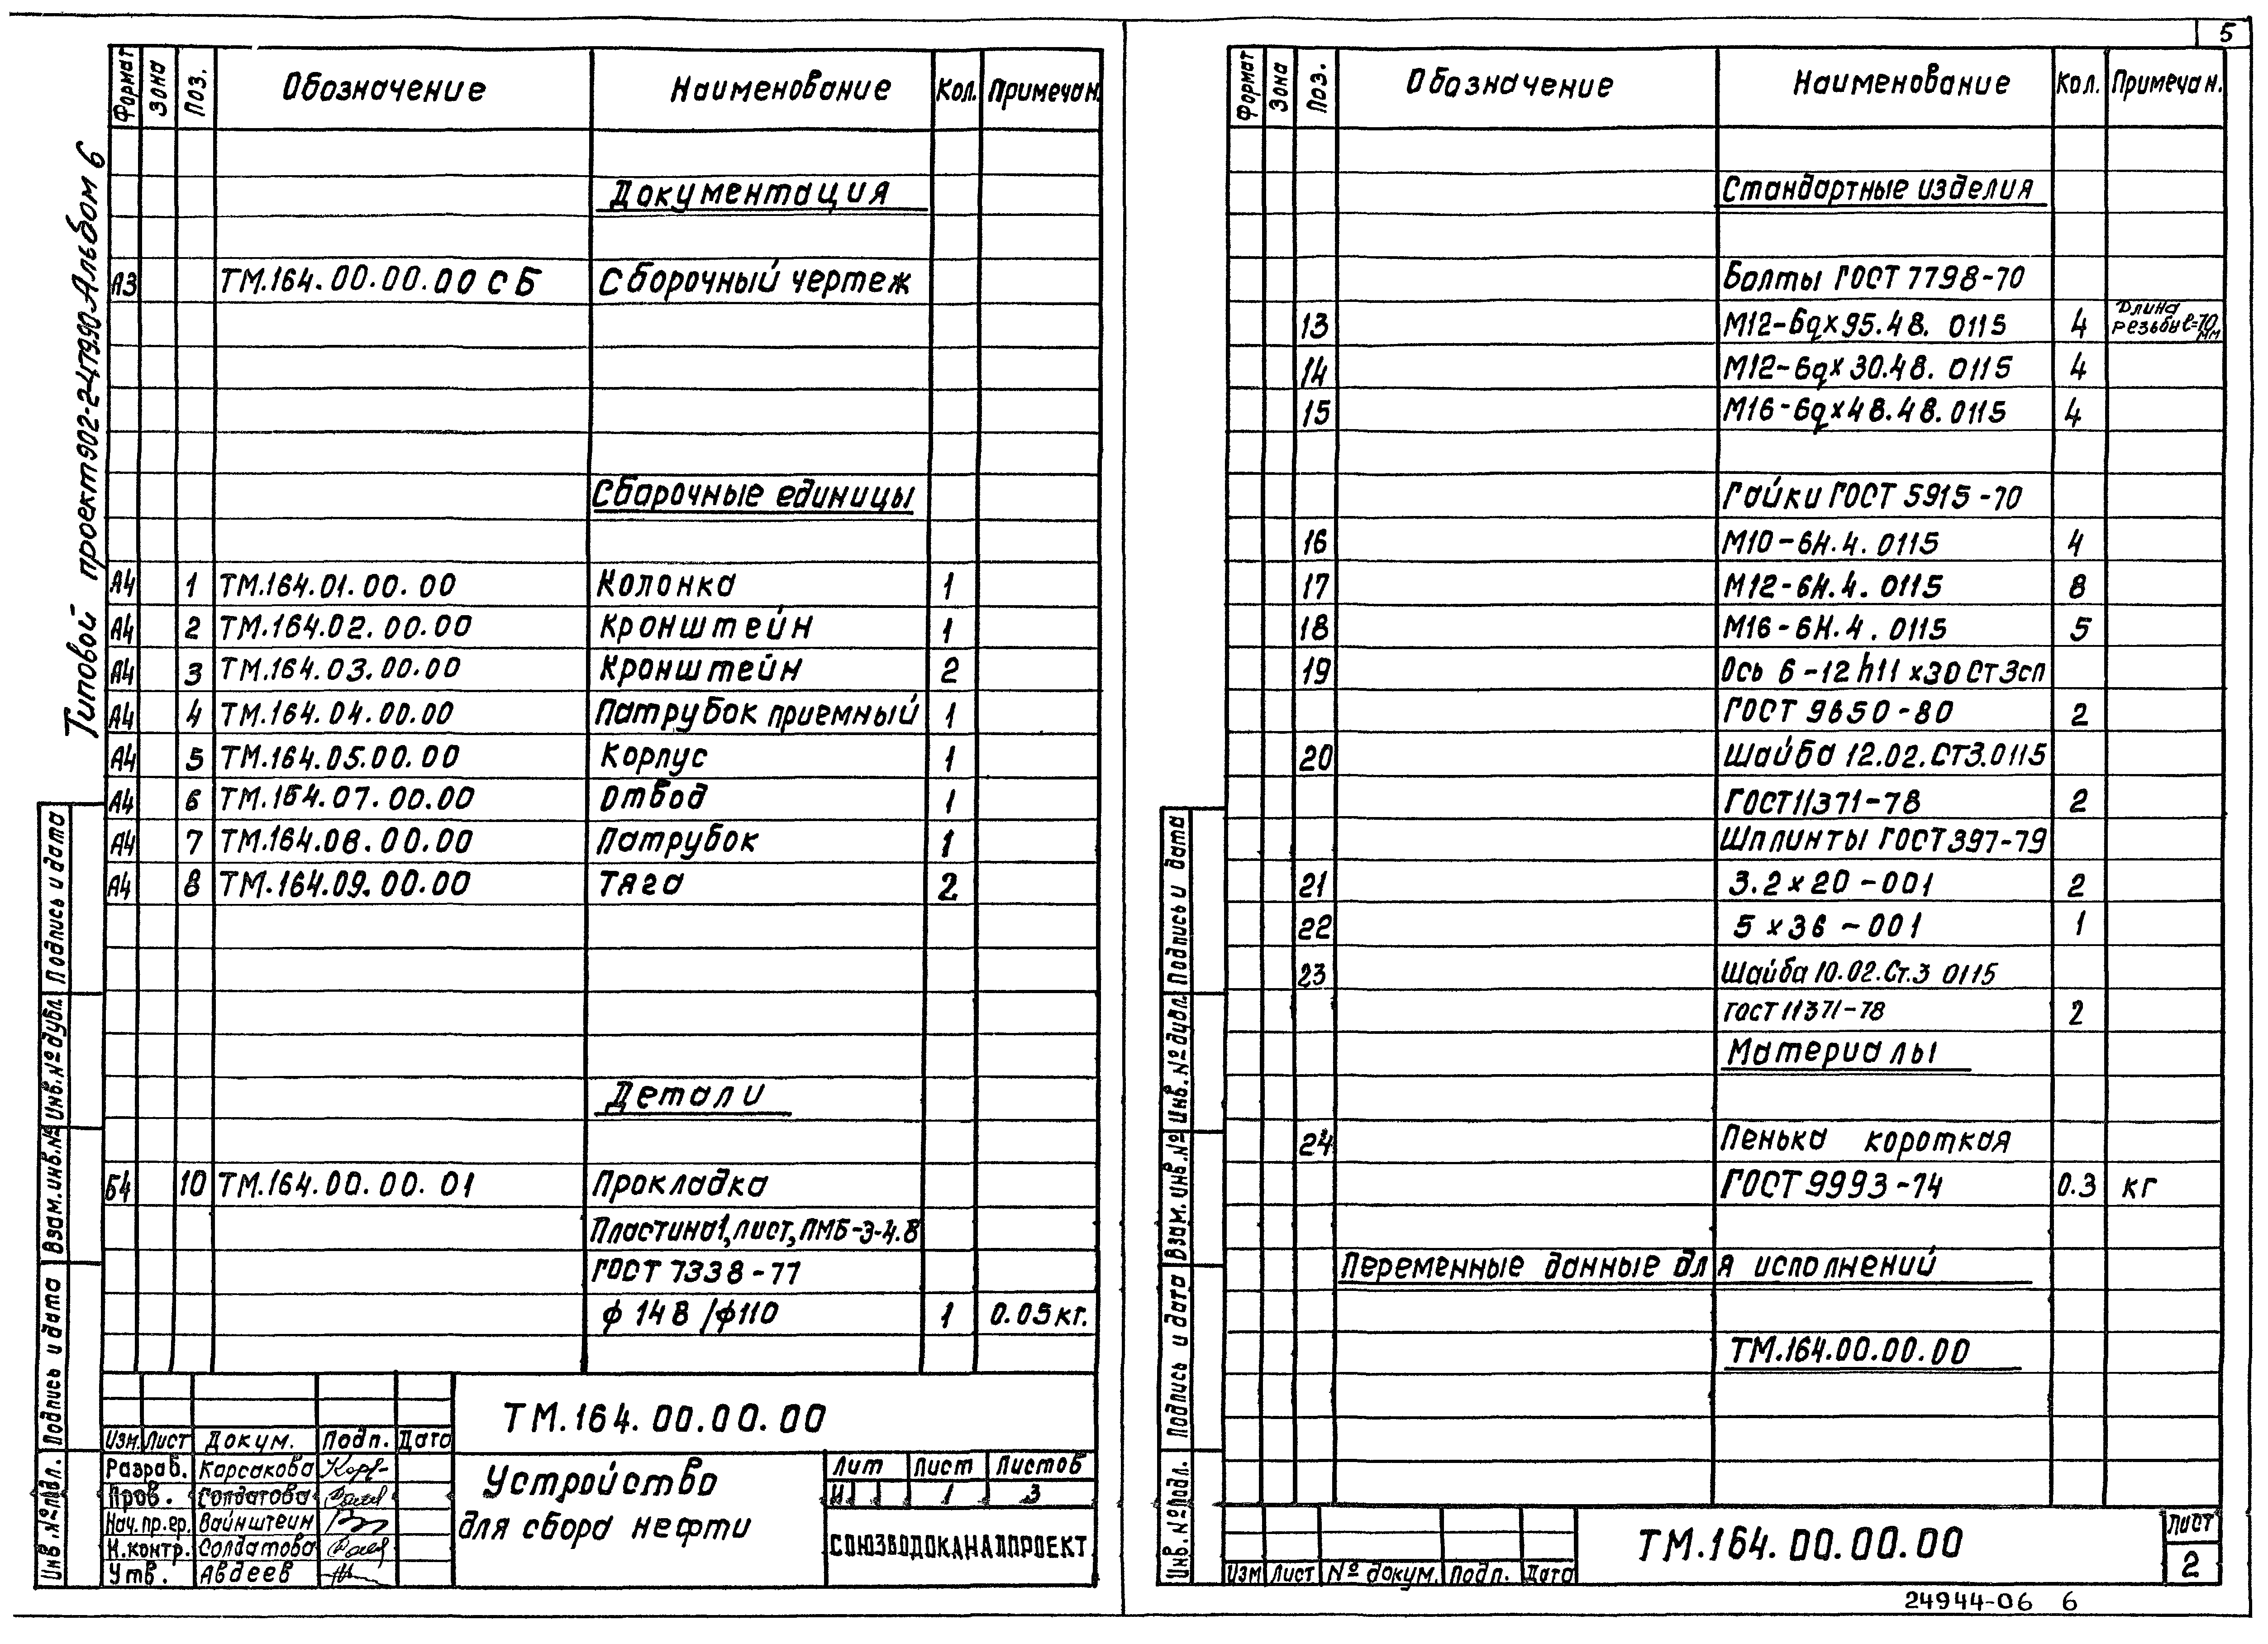 5
Типовой проект 902-2-479.90 Альбом 6
Формат Зона Поз. Обозначение Наименование Кол. Примечан.
Документация
А3 ТМ.164.00.00.00 СБ Сборочный чертеж
Сборочные единицы
А4 1 ТМ.164.01.00.00 Колонка 1
А4 2 ТМ.164.02.00.00 Кронштейн 1
А4 3 ТМ.164.03.00.00 Кронштейн 2
А4 4 ТМ.164.04.00.00 Патрубок приемный 1
А4 5 ТМ.164.05.00.00 Корпус 1
А4 6 ТМ.164.07.00.00 Отвод 1
А4 7 ТМ.164.08.00.00 Патрубок 1
А4 8 ТМ.164.09.00.00 Тяга 2
Детали
Б4 10 ТМ.164.00.00.01 Прокладка
Пластина1,лист,ПМБ-3-4.В
ГОСТ 7338-77
ф 148 /ф110 1 0.05кг.
Подпись и дата
Инв.№дубл.
Взам.инв.№
Подпись и дата
Инв.№подл.
ТМ.164.00.00.00
Изм. Лист Докум. Подп. Дата
Разраб. Карсакова
Пров. Солдатова
Нач.пр.гр. Вайнштеин
Н.контр. Солдатова
Утв. Авдеев
Устройство
для сбора нефти
Лит Лист Листов
И 1 3
СОЮЗВОДОКАНАЛПРОЕКТ
Формат Зона Поз. Обозначение Наименование Кол. Примечан.
Стандартные изделия
Болты ГОСТ 7798-70
13 М12-6qх95.48. 0115 4 Длина резьбы ℓ=70 мм
14 М12-6qх30.48. 0115 4
15 М16-6qх48.48.0115 4
Гайки ГОСТ 5915-70
16 М10-6Н.4. 0115 4
17 М12-6Н.4. 0115 8
18 М16-6Н.4. 0115 5
19 Ось 6-12 h11 х30 Ст3сп
ГОСТ 9650-80 2
20 Шайба 12.02.СТ3.0115
ГОСТ11371-78 2
Шплинты ГОСТ397-79
21 3.2х20-001 2
22 5х36-001 1
23 Шайба 10.02.Ст.3 0115
гост 11371-78 2
Материалы
24 Пенька короткая
ГОСТ 9993-74 0.3 кг
Переменные данные для исполнений
ТМ.164.00.00.00
Подпись и дата
Инв.№дубл.
Взам.инв.№
Подпись и дата
Инв.№подл.
Изм Лист № докум. Подп. Дата
ТМ.164.00.00.00
Лист
2
24944-06 6